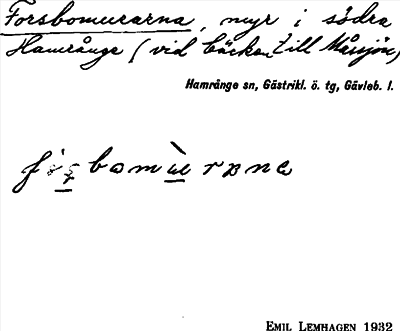 Forsbomurarna, myr i södra
Hamrånge (vid bäcken till Måssjön)
Hamrånge sn, Gästrikl. ö. tg, Gävleb. l.
EMIL LEMHAGEN 1932